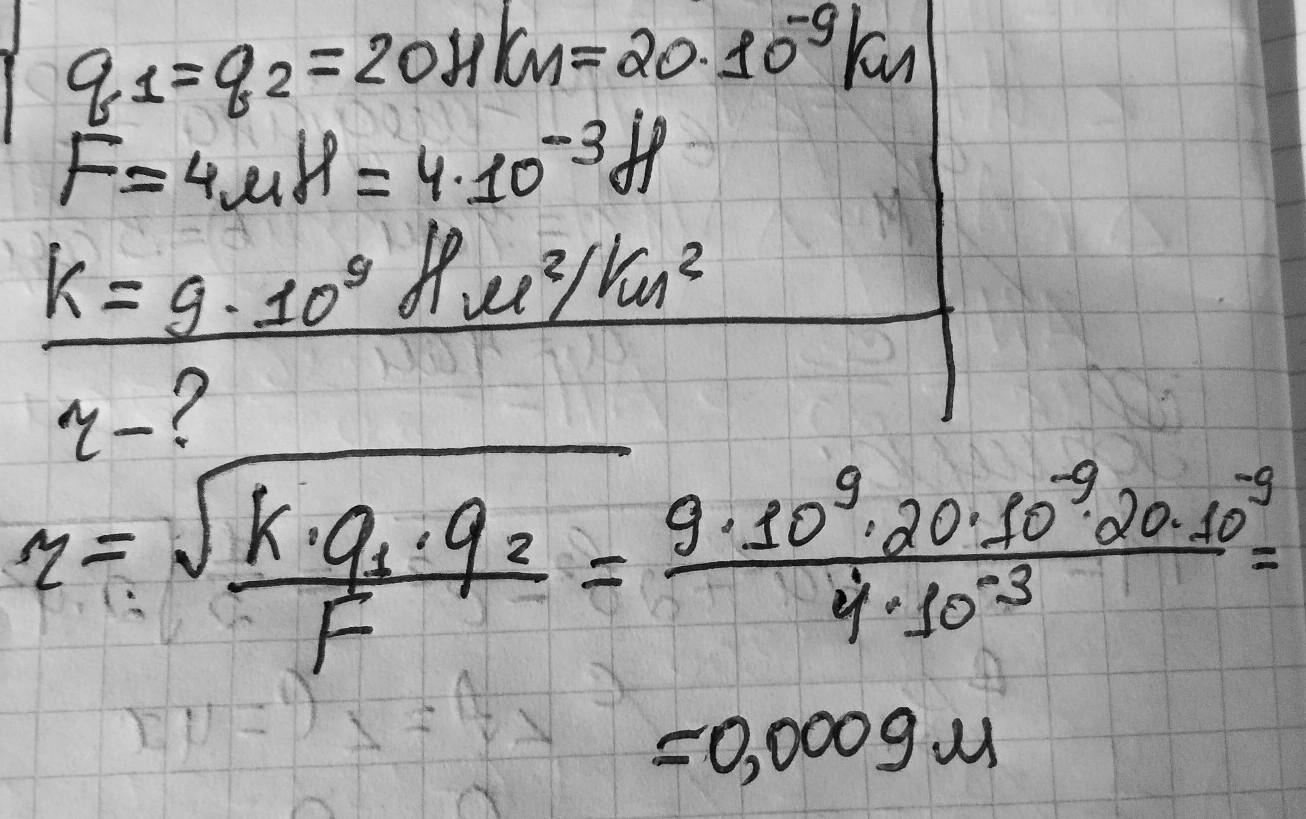 q₁=q₂=20нКл=20·10⁻⁹Кл
F=4мН=4·10⁻³Н
k=9·10⁹ Нм²/Кл²
r-?
r=√(k·q₁·q₂/F)=9·10⁹·20·10⁻⁹·20·10⁻⁹/4·10⁻³=
=0,0009м